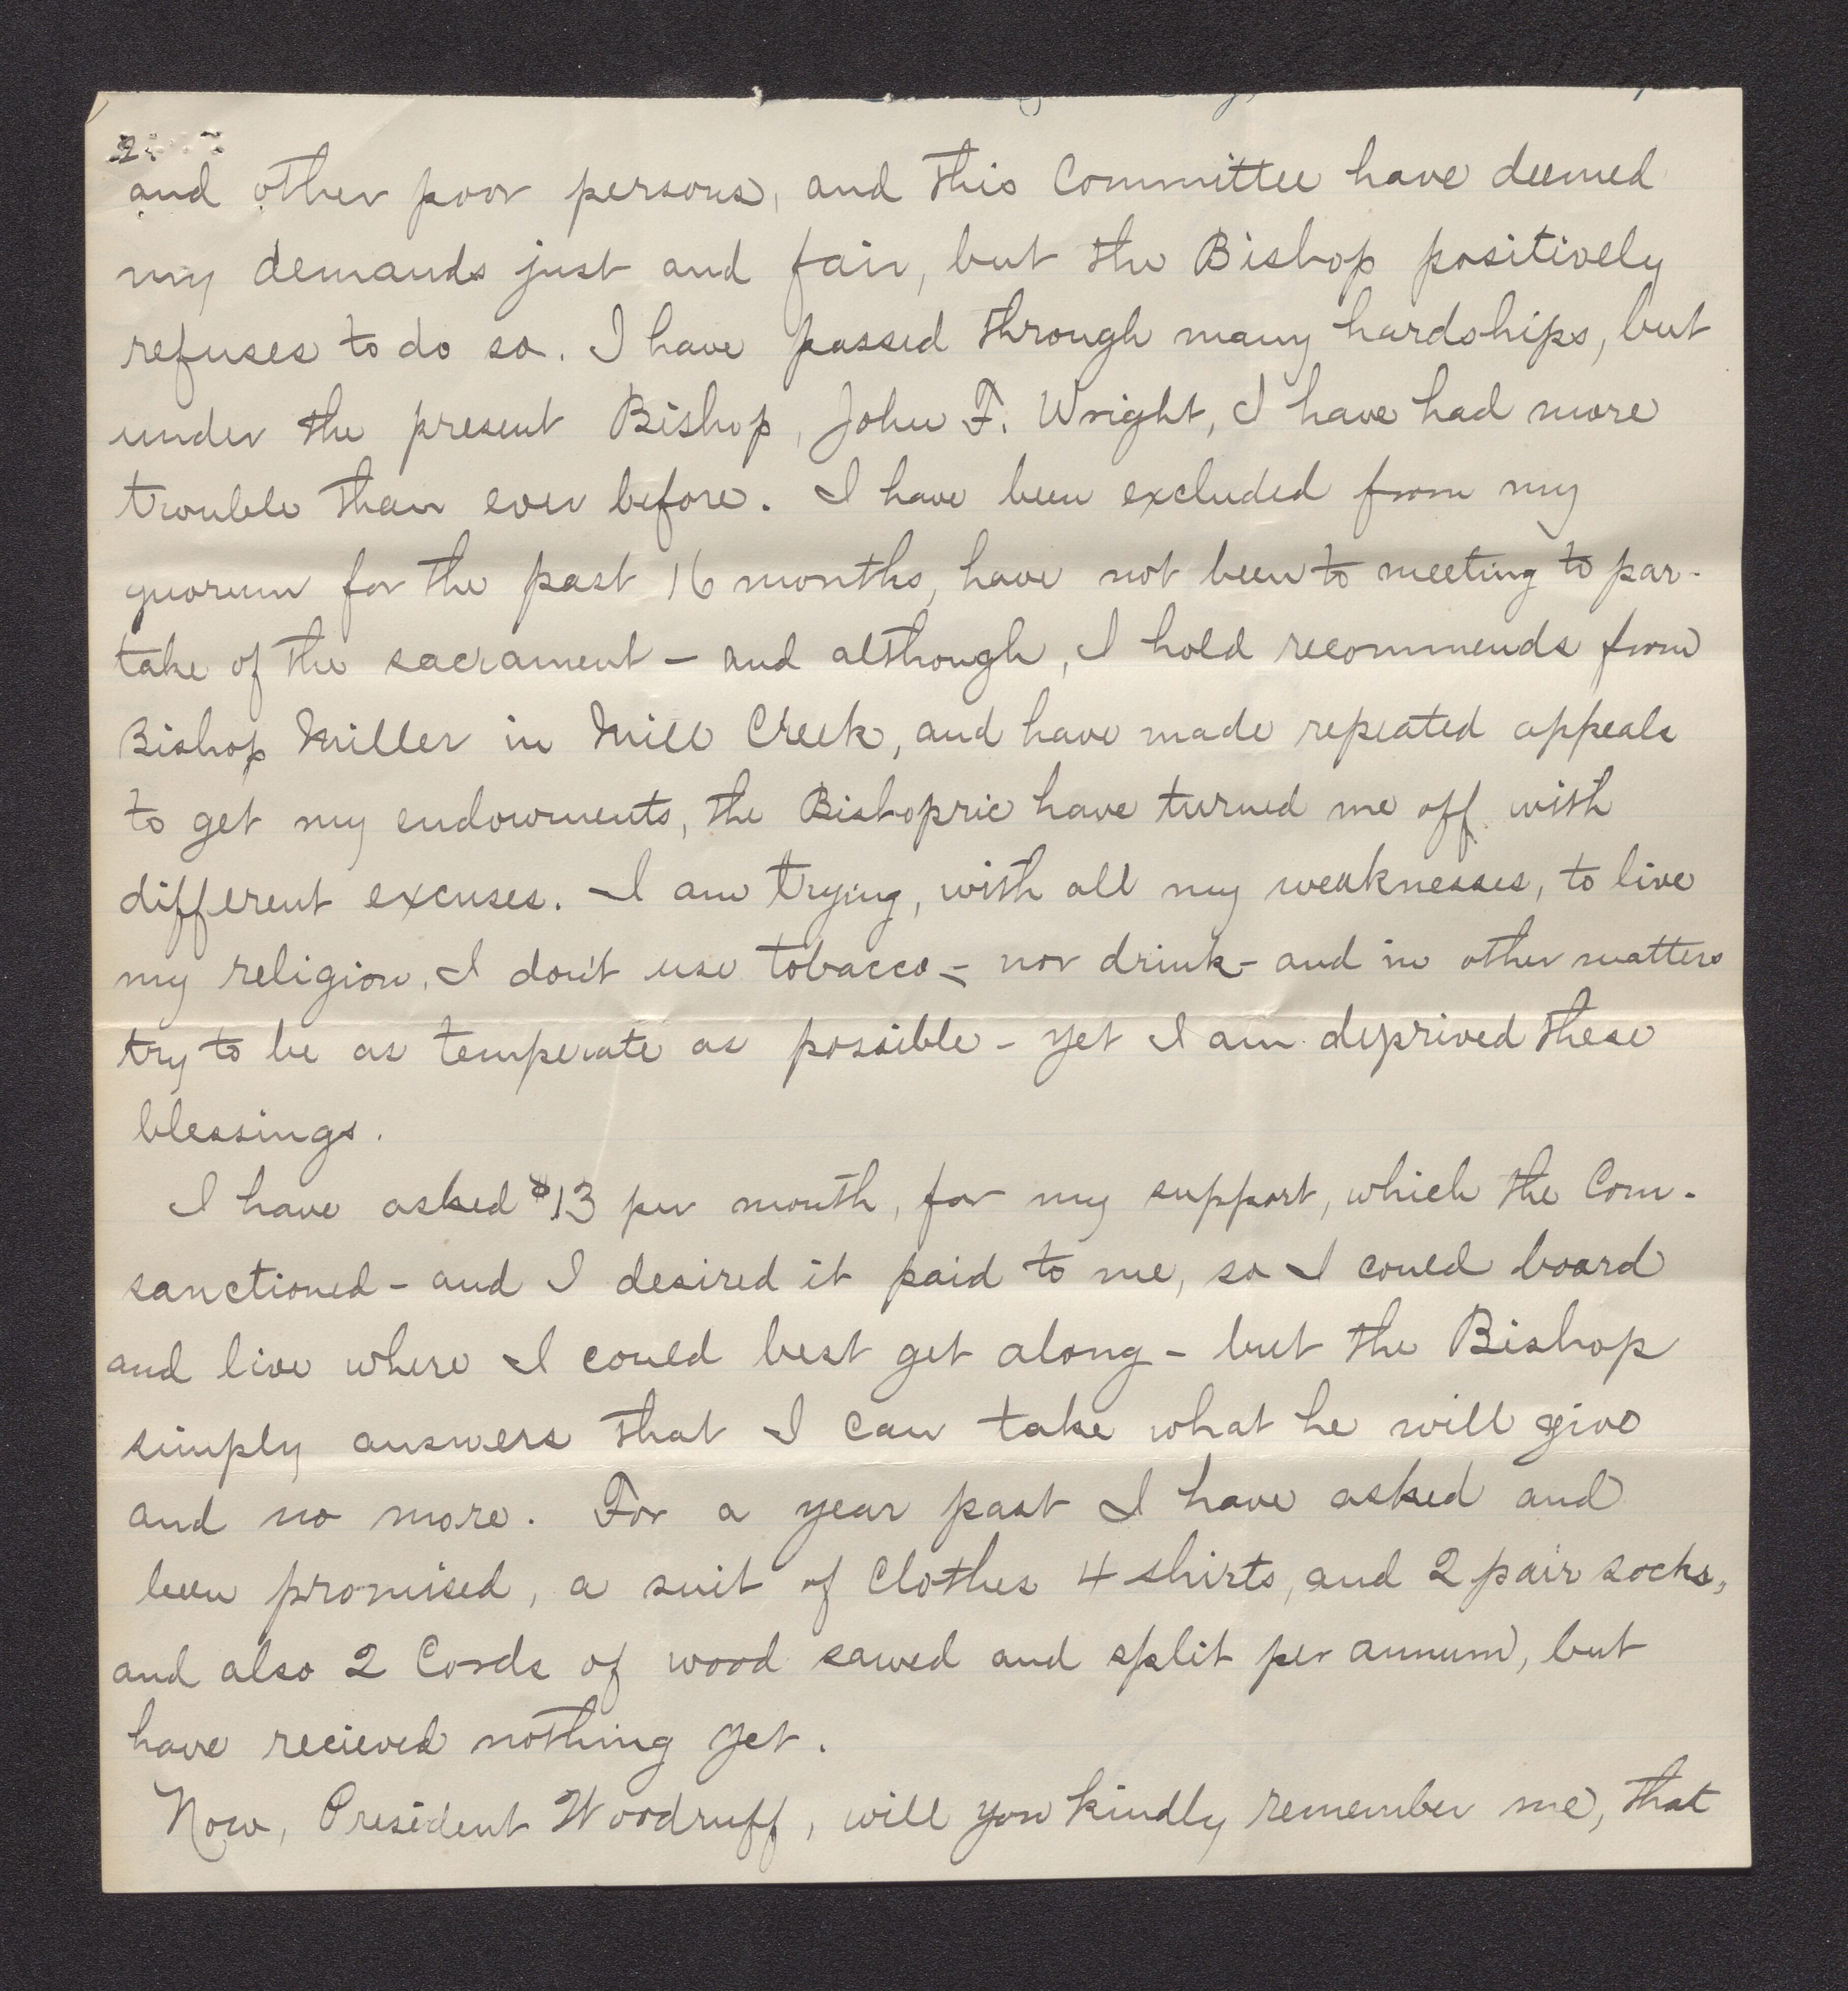 2.
and other poor persons, and this Committee have deemed
my demands just and fair, but the Bishop positively
refuses to do so. I have passed through many hardships, but
under the present Bishop, John F. Wright, I have had more
trouble than ever before. I have been excluded from my
quorum for the past 16 months, have not been to meeting to par-
take of the sacrament – and although, I hold recommends from
Bishop Miller in Mill Creek, and have made repeated appeals
to get my endowments, the Bishopric have turned me off with
different excuses. I am trying, with all my weaknesses, to live
my religion, I don't use tobacco – nor drink – and in other matters
try to be as temperate as possible – yet I am deprived these
blessings.
I have asked $13 per month, for my support, which the Com.
sanctioned – and I desired it paid to me, so I could board
and live where I could best get along – but the Bishop
simply answers that I can take what he will give
and no more. For a year past I have asked and
been promised, a suit of Clothes 4 shirts, and 2 pair socks,
and also 2 Cords of wood sawed and split per annum, but
have recieved nothing yet.
Now, President Woodruff, will you kindly remember me, that